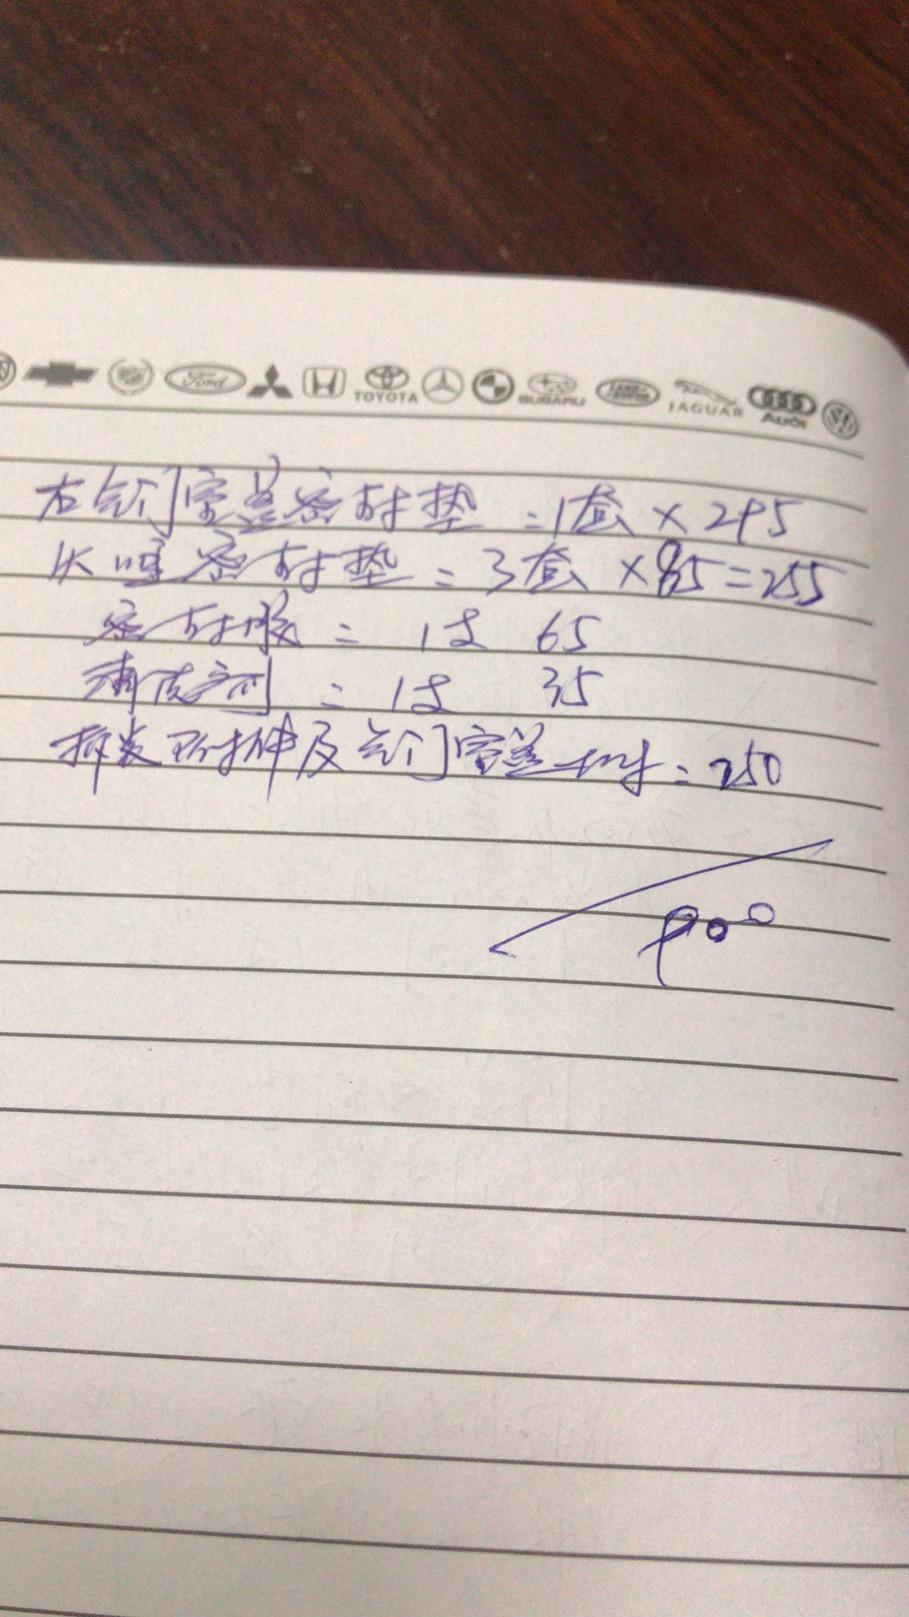 Ford TOYOTA SUBARU LAND ROVER JAGUAR Audi
右气门室盖密封垫 =1套 × 295
火嘴密封垫 = 3套 ×85=255
密封胶 = 1支 65
清洗剂 = 1支 35
拆装 及气门室盖 = 250
900